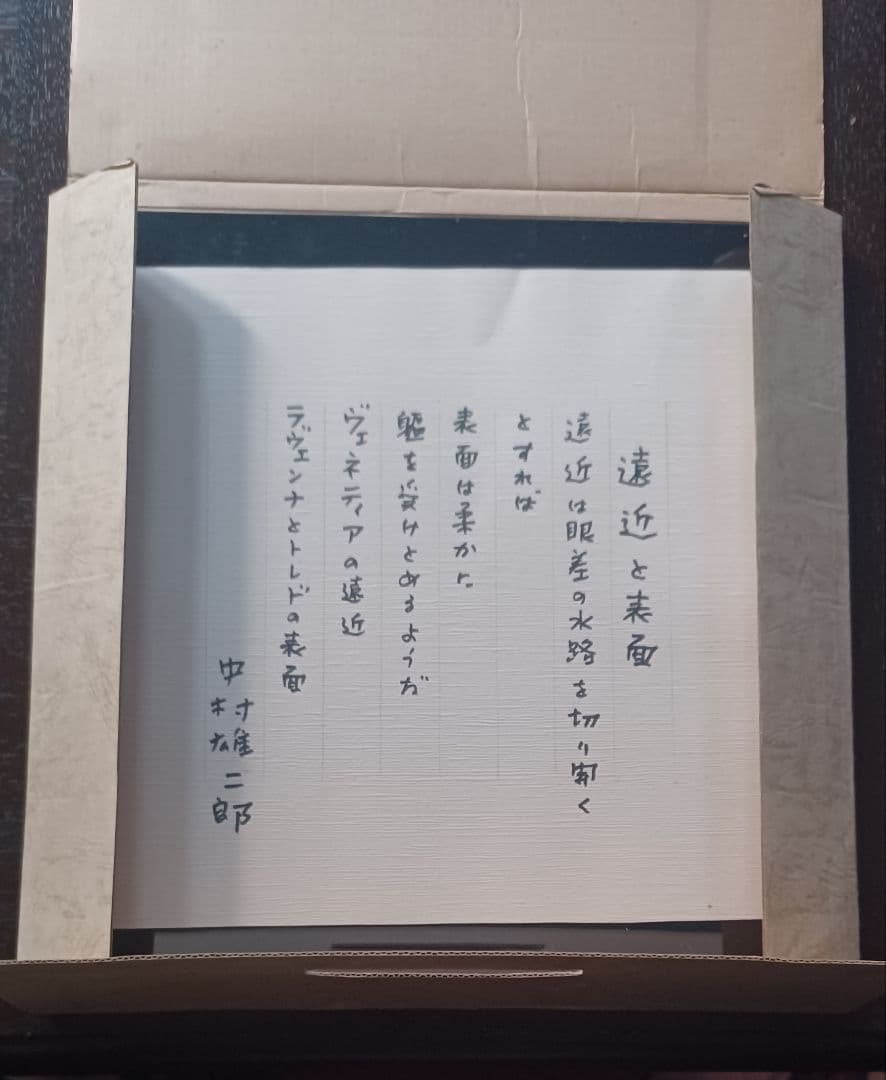 遠近と表面
遠近は眼差の水路を切り開く
とすれば
表面は柔かに
軀を受けとめるようだ
ヴェネティアの遠近
ラヴェンナとトレドの表面
中村雄二郎